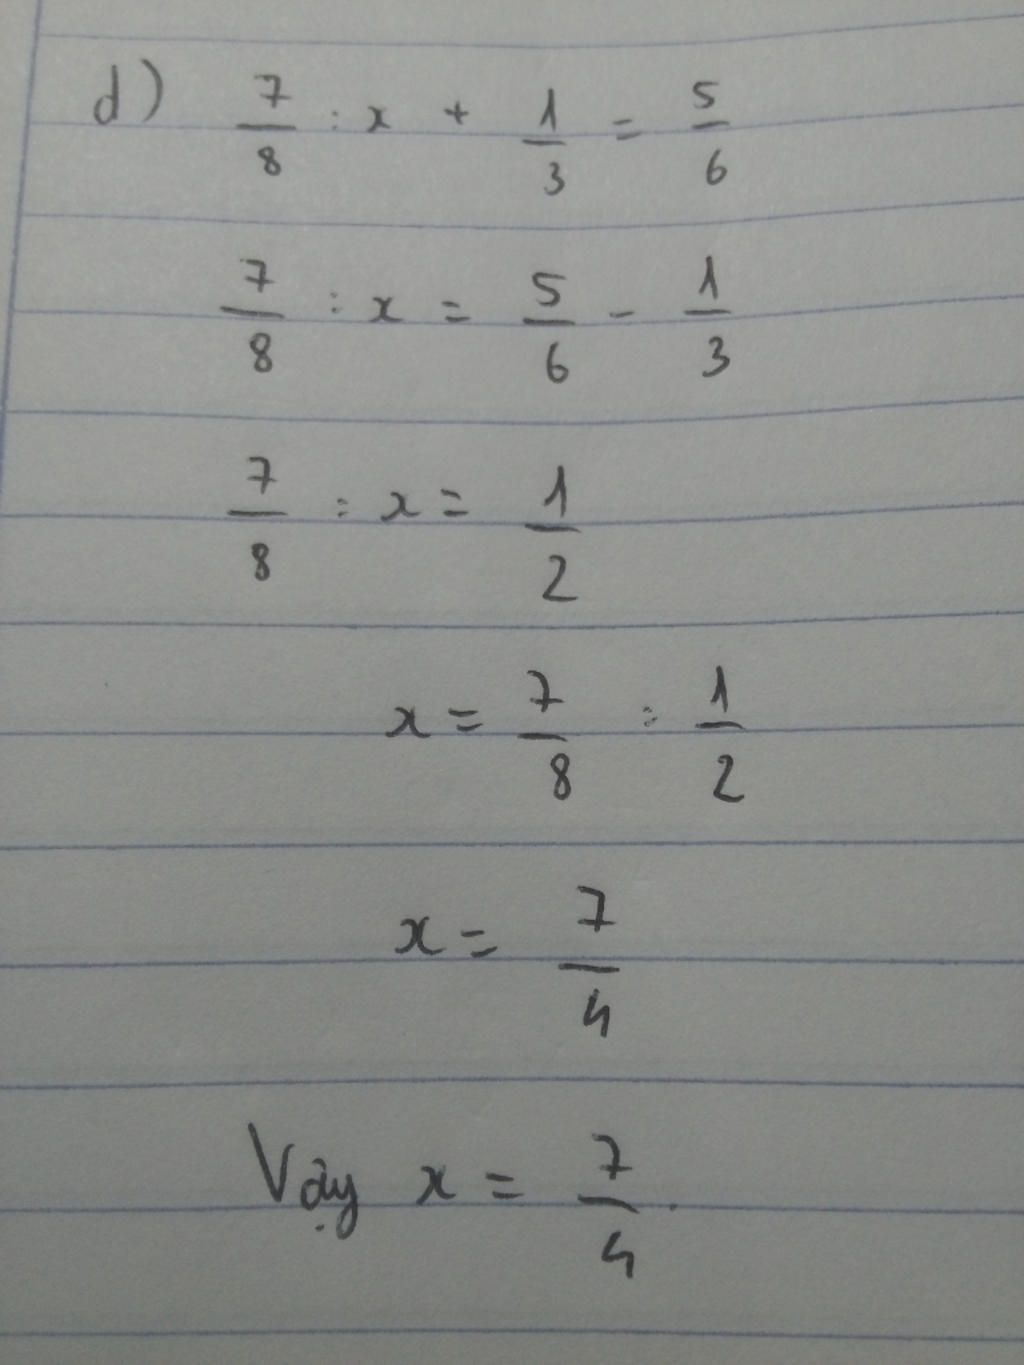 d) 7/8 : x + 1/3 = 5/6
7/8 : x = 5/6 - 1/3
7/8 : x = 1/2
x = 7/8 : 1/2
x = 7/4
Vậy x = 7/4.